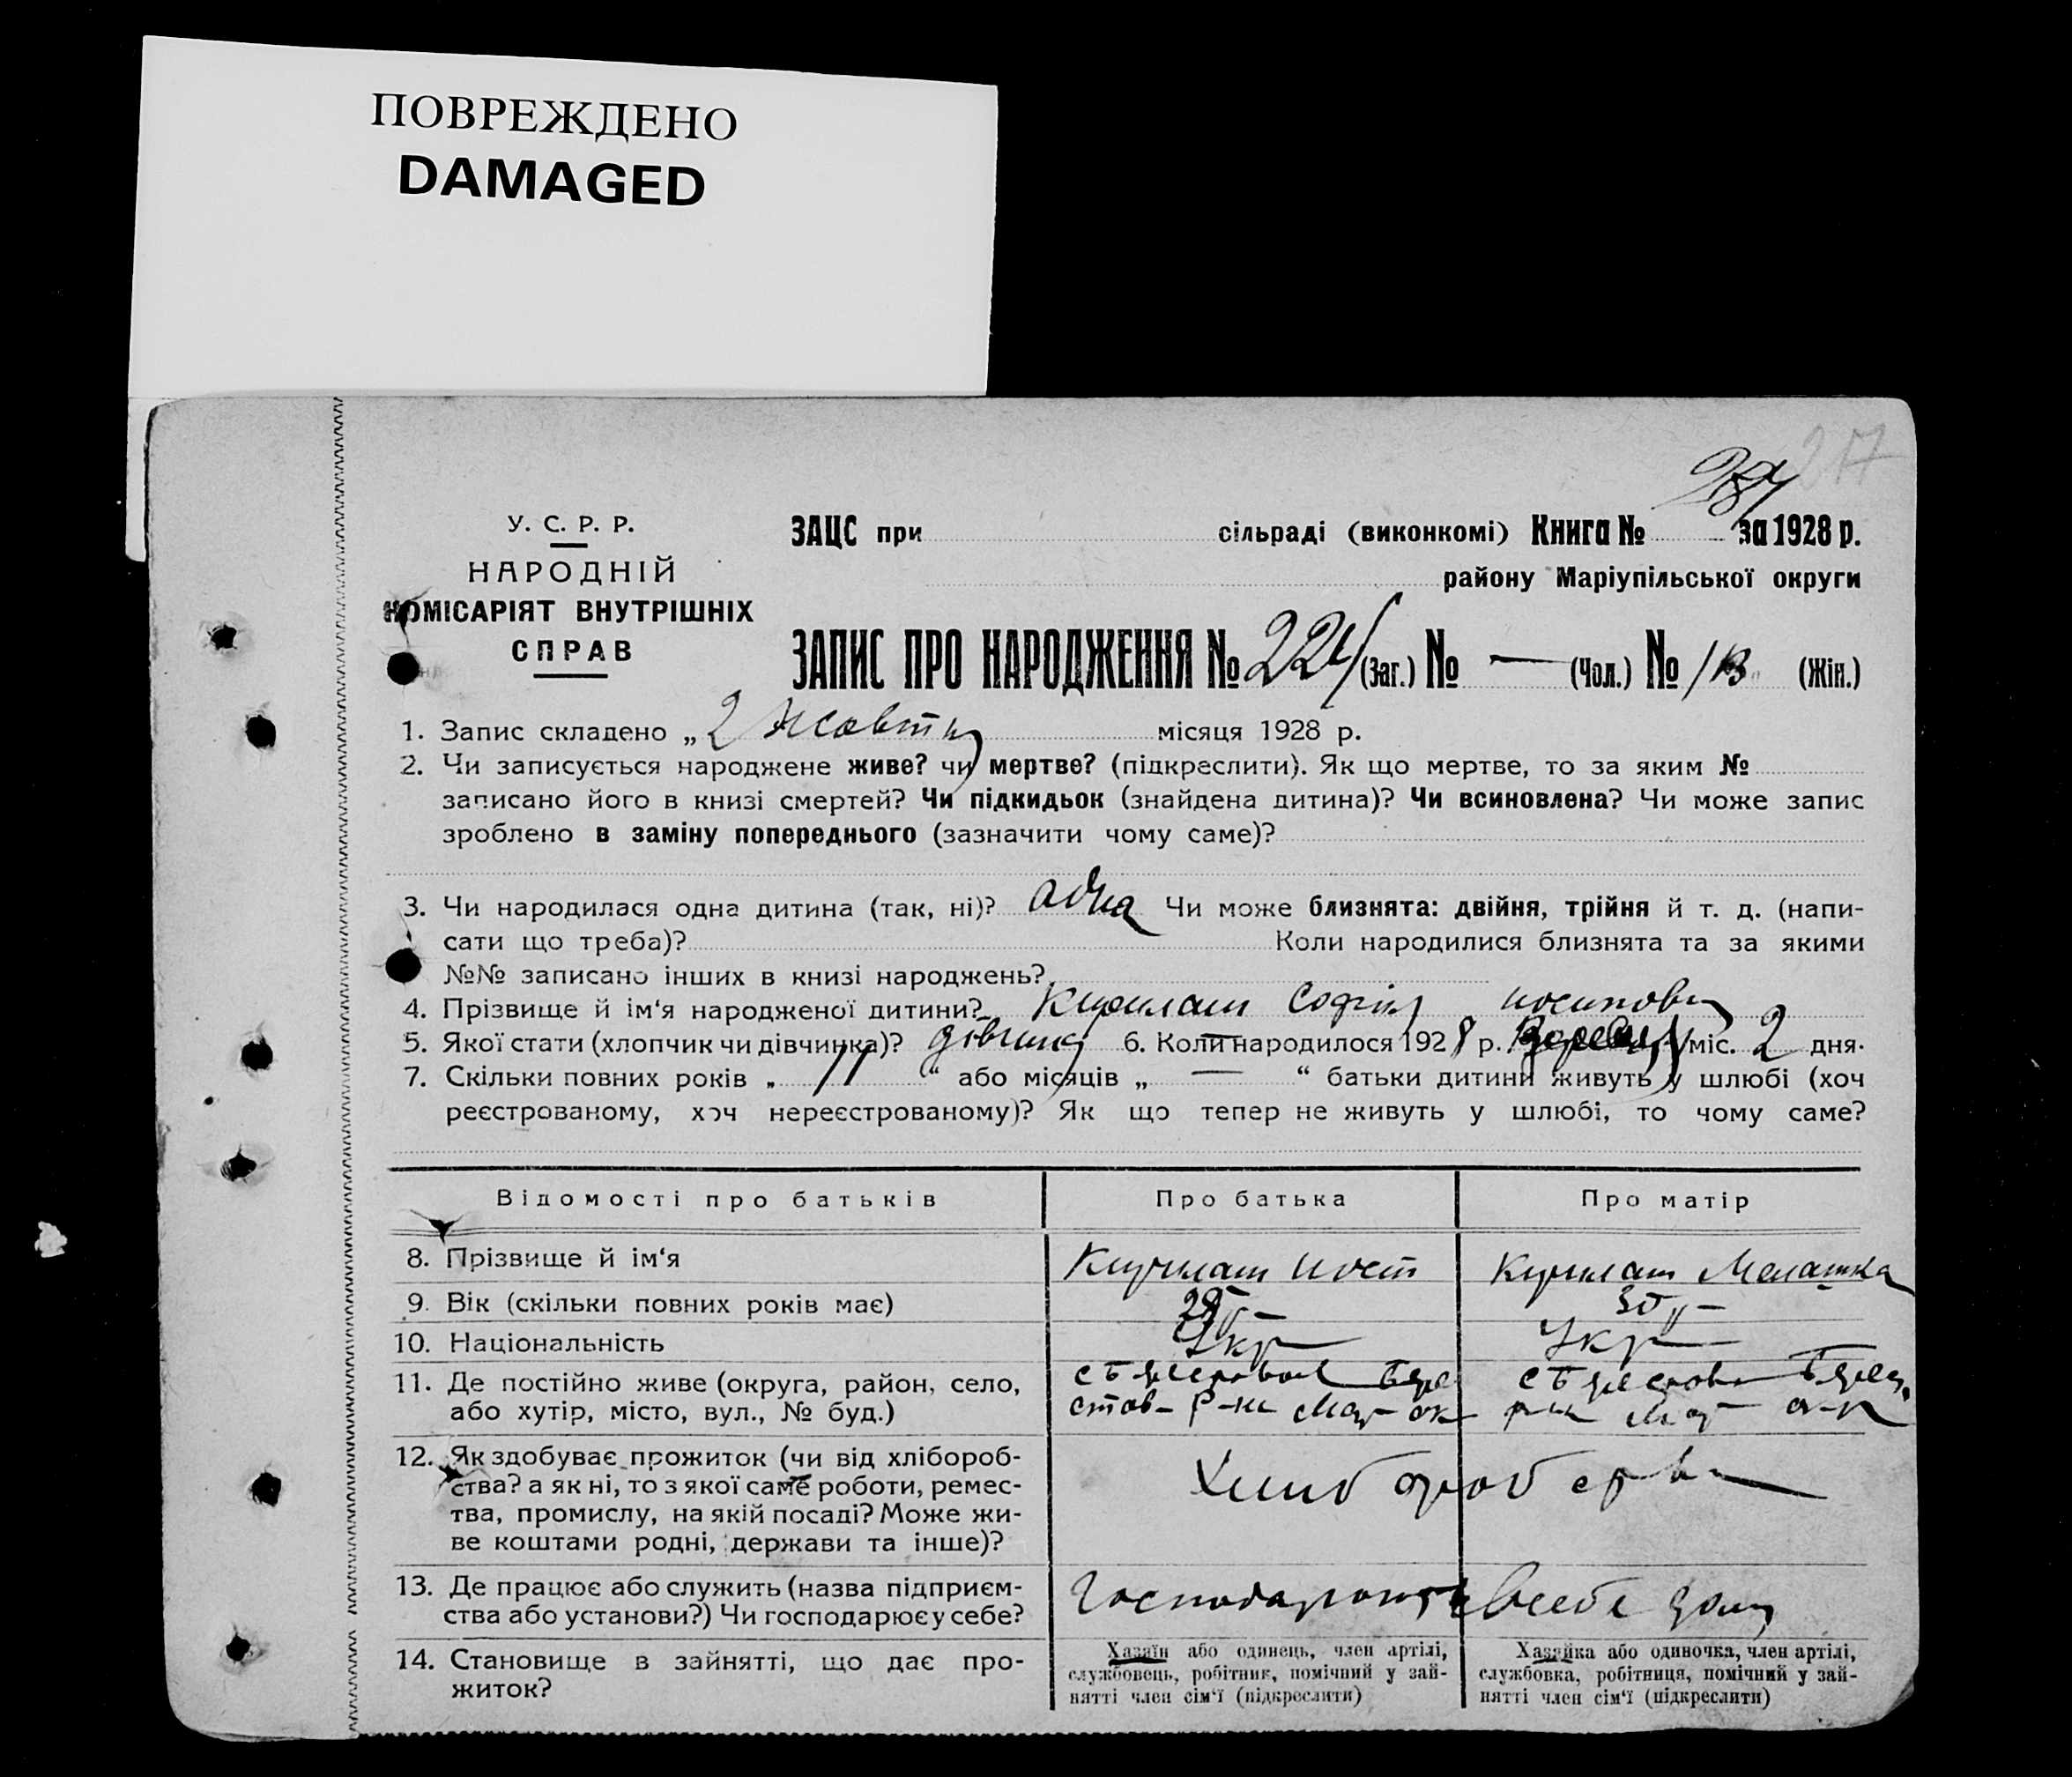 ПОВРЕЖДЕНО
DAMAGED
217
У. С. Р. Р.
НАРОДНІЙ
КОМІСАРІЯТ ВНУТРІШНІХ
СПРАВ
ЗАЦС при сільраді (виконкомі) Книга № за 1928 р.
району Маріупільської округи
ЗАПИС ПРО НАРОДЖЕННЯ № 224 (Заг.) № — (Чол.) № 113 (Жін.)
1. Запис складено „ 2 жовтня місяця 1928 р.
2. Чи записується народжене живе? чи мертве? (підкреслити). Як що мертве, то за яким №
записано його в книзі смертей? Чи підкидьок (знайдена дитина)? Чи всиновлена? Чи може запис
зроблено в заміну попереднього (зазначити чому саме)?
3. Чи народилася одна дитина (так, ні)? одна Чи може близнята: двійня, трійня й т. д. (напи-
сати що треба)? Коли народилися близнята та за якими
№№ записано інших в книзі народжень?
4. Прізвище й ім‘я народженої дитини? Кирилаш Софія
5. Якої стати (хлопчик чи дівчинка)? дівчина 6. Коли народилося 1928 р. Вересня міс. 2 дня.
7. Скільки повних років „ 11 “ або місяців „ — “ батьки дитини живуть у шлюбі (хоч
реєстрованому, хоч нереєстрованому)? Як що тепер не живуть у шлюбі, то чому саме?
Відомості про батьків Про батька Про матір
8. Прізвище й ім‘я Кирилаш Кирилаш Мелашка
9. Вік (скільки повних років має) 30
10. Національність Укр Укр
11. Де постійно живе (округа, район, село,
або хутір, місто, вул., № буд.) став- р-ну Мар ок
12. Як здобуває прожиток (чи від хлібороб-
ства? а як ні, то з якої саме роботи, ремес-
тва, промислу, на якій посаді? Може жи-
ве коштами родні, держави та інше)?
13. Де працює або служить (назва підприєм-
ства або установи?) Чи господарює у себе? дома
14. Становище в зайнятті, що дає про-
житок?
Хазяїн або одинець, член артілі,
службовець, робітник, помічний у зай-
нятті член сім‘ї (підкреслити)
Хазяйка або одиночка, член артілі,
службовка, робітниця, помічний у зай-
нятті член сім‘ї (підкреслити)